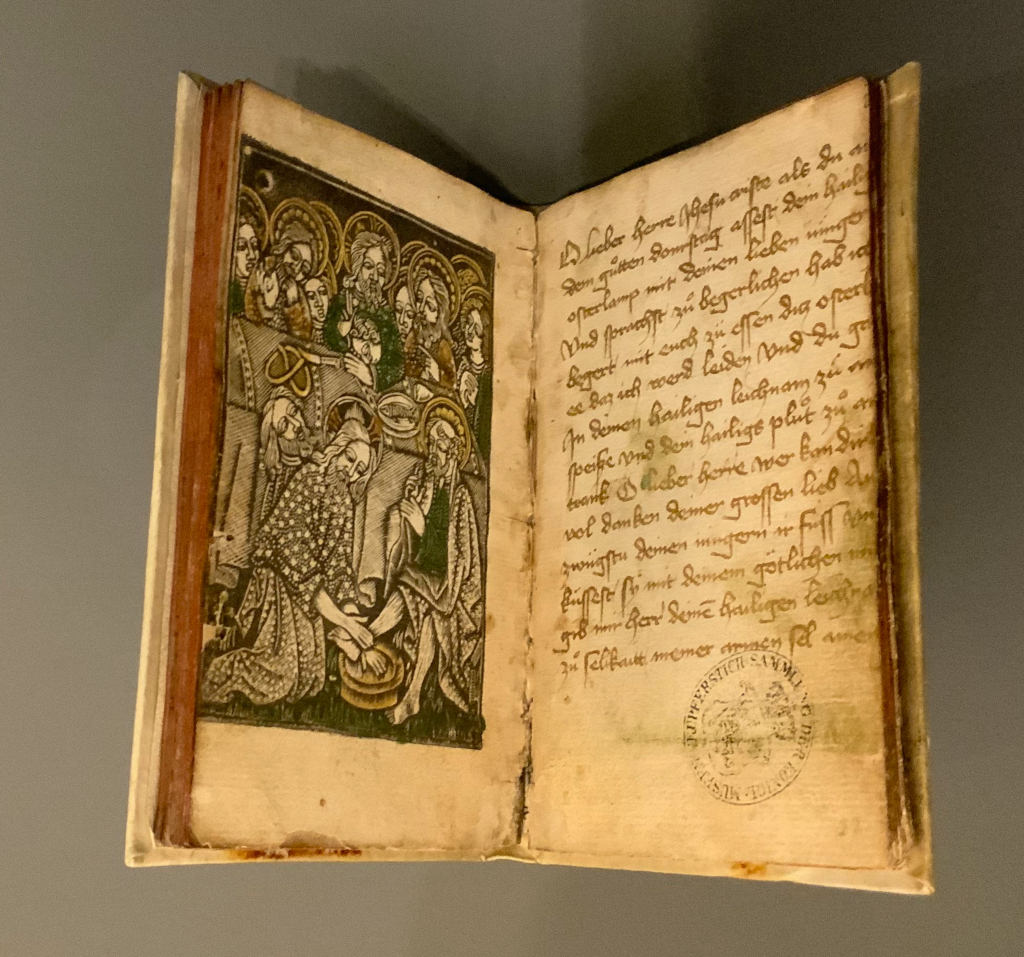 O lieber herre Jhesu criste als du an
dem gůtten donrstag assest dein hailig
osterlamp mit deinen lieben iungern
Vnd sprachst zů begerlichen hab ich
begert mit euch zů essen diz osterl
ee daz ich werd leiden Vnd du ga
In deinen hailigen leichnam zů ai
speise vnd dein hailigs plůt zů ai
trank O lieber herre wer kan dir
vol danken deiner grossen lieb Du
zwůgstu deinen iungern ir fuss vn
kůssest sy mit deinem götlichen mu
gib mir herr deinē hailigen leichna
zů selikaitt meiner armen sel amen
KUPFERSTICH SAMMLUNG DER KÖNIGL. MUSEEN